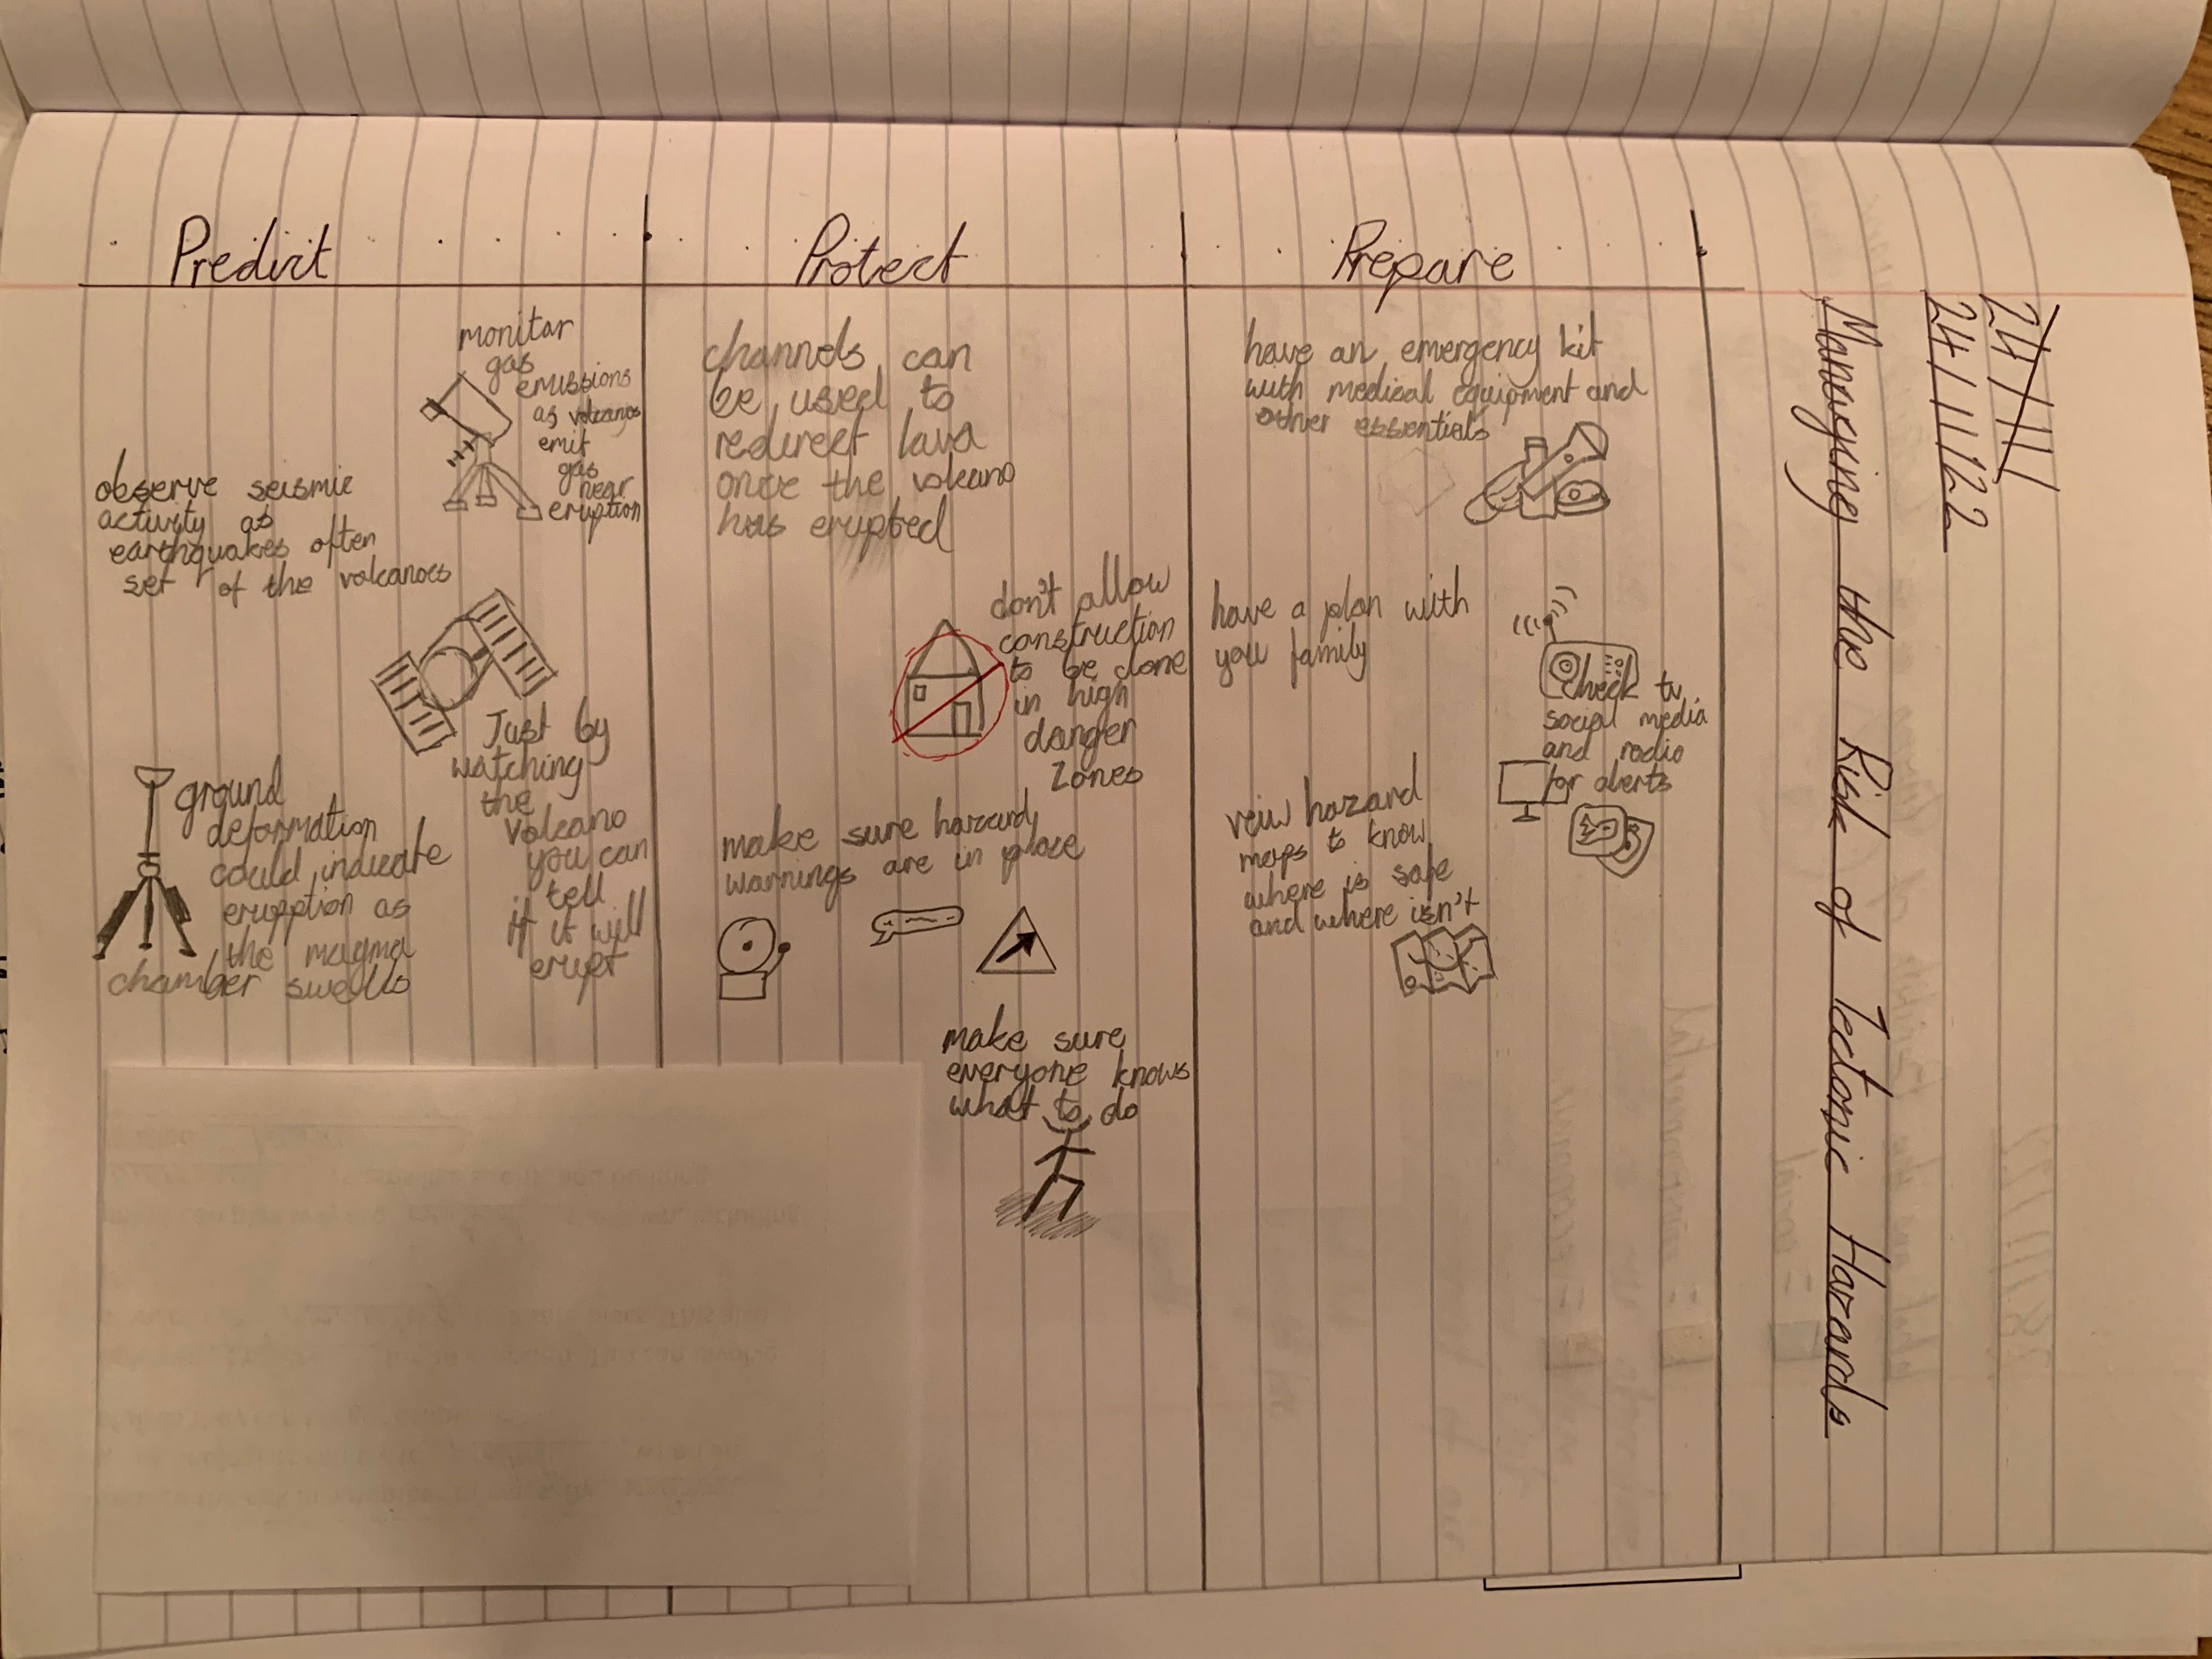 24/11/
24/11/22
Managing the Risk of Tectonic Hazards
Predict
monitar
gas
emissions
as volcanos
emit
gas
near
eruption
observe seismic
activity as
earthquakes often
set of the volcanoes
Just by
watching
the
volcano
you can
tell
if it will
erupt
ground
deformation
could indicate
erupption as
the magma
chamber swells
Protect
channels can
be used to
redirect lava
once the volcano
has erupted
don't allow
construction
to be done
in high
danger
zones
make sure hazard
warnings are in place
make sure
everyone knows
what to do
Prepare
have an emergency kit
with medical equipment and
other essentials
have a plan with
you family
check tv
social media
and radio
for alerts
veiw hazard
maps to know
where is safe
and where isn't